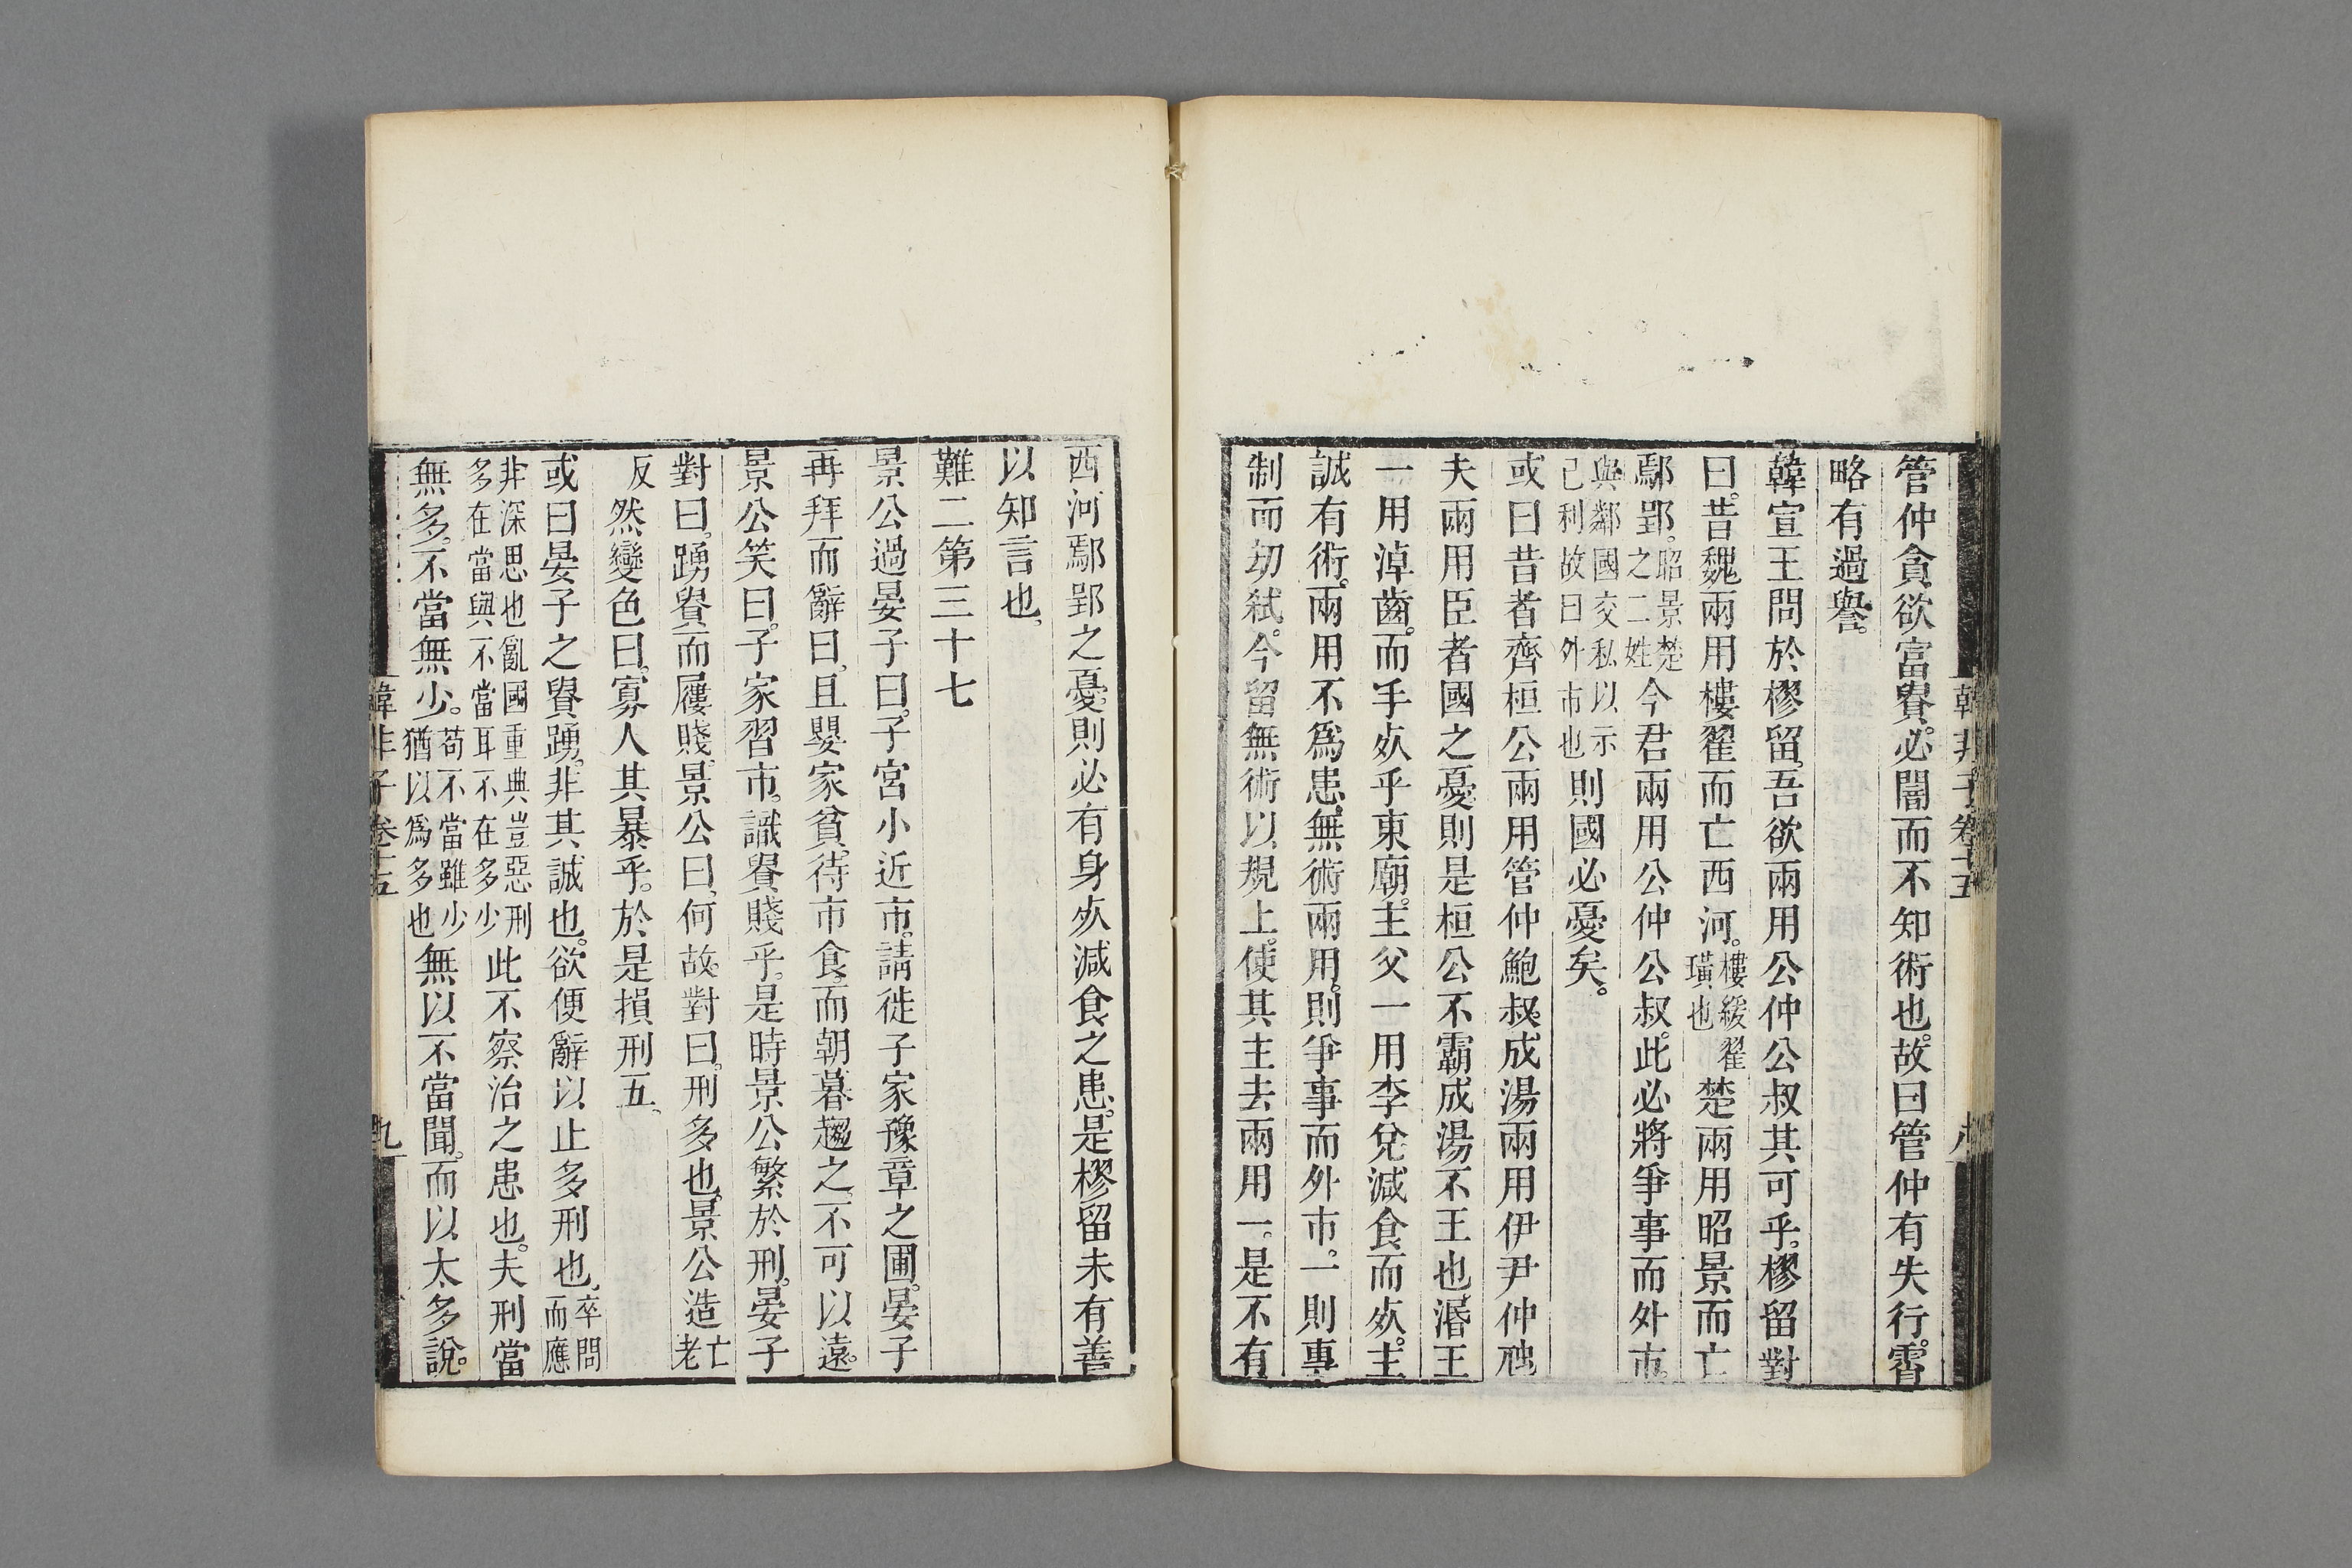 管仲貪欲富貴。必闇而不知術也。故曰管仲有失行。霄
略有過譽。
韓宣王問於樛留。吾欲兩用公仲公叔其可乎。樛留對
曰。昔魏兩用樓翟而亡西河。樓緩翟璜也楚兩用昭景而亡
鄢郢。昭景楚之二姓今君兩用公仲公叔。此必將爭事而外市。
與鄰國交私以示己利故曰外市也則國必憂矣。
或曰昔者齊桓公兩用管仲鮑叔。成湯兩用伊尹仲虺
夫兩用臣者國之憂。則是桓公不霸成湯不王也。湣王
一用淖齒。而手死乎東廟。主父一用李兌減食而死。主
誠有術。兩用不爲患。無術兩用。則爭事而外市。一則專
制而刧弒。今留無術以規上。使其主去兩用一。是不有
韓非子卷十五 八
西河鄢郢之憂。則必有身死減食之患。是樛留未有善
以知言也。
難二第三十七
景公過晏子曰。子宮小近市。請徙子家豫章之圃。晏子
再拜而辭曰。且嬰家貧。待市食。而朝暮趨之。不可以遠。
景公笑曰。子家習市。識貴賤乎。是時景公繁於刑。晏子
對曰。踴貴而屨賤。景公曰。何故。對曰。刑多也。景公造亡老
反然變色曰。寡人其暴乎。於是損刑五。
或曰晏子之貴踴。非其誠也。欲便辭以止多刑也。卒問而應
非深思也亂國重典豈惡刑多在當與不當耳不在多少此不察治之患也。夫刑當
無多。不當無少。苟不當雖少猶以爲多也無以不當聞。而以太多說。
韓非子卷十五 九